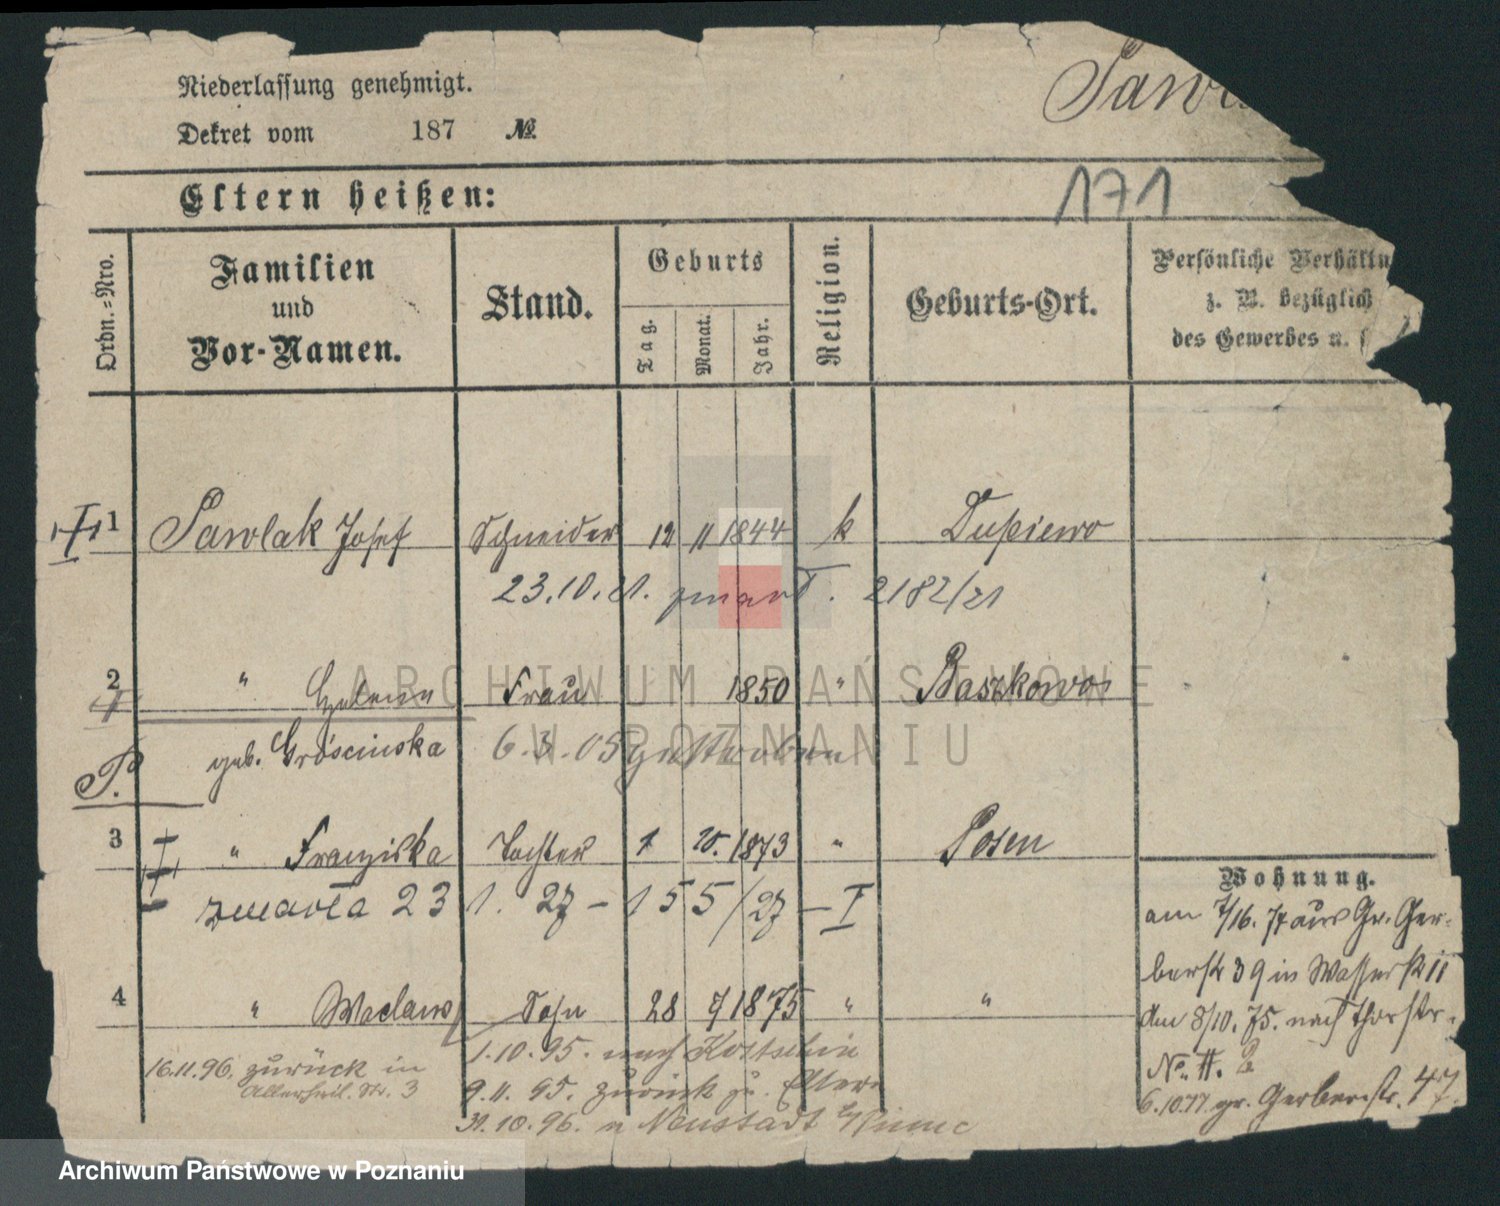 Niederlassung genehmigt.
Dekret vom 187 №
Paw
171
Eltern heißen:
Ordn.=Nro.
Familien und Vor-Namen.
Stand.
Geburts
Tag.
Monat.
Jahr.
Religion.
Geburts-Ort.
Persönliche Verhältn
z. B. bezüglich
des Gewerbes u. s
1 Pawlak Josef Schneider 12 11 1844 k Dupiewo
23.10.21. zmarł. 2182/21
2 " Helena Frau 1850 " Baszkowo
geb. Grościnska 6.3.05 gestorben
P.
3 " Franziska Tochter 1 10. 1873 " Posen
zmarła 23 1. 27 – 155/27 – I
Wohnung.
am 7/16. 74 aus Gr. Ger-
berstr 39 in Wasserstr 11
4 " Waclaw Sohn 28 9 1875 " "
den 8/10. 75. nach Thorstr.
1.10.95. nach Kostschin
16.11.96. zurück in
№ 11.
Allerheil. Str. 3
9.11.95. zurück zu Eltern
6.10.77 gr. Gerberstr. 47.
31.10.96. n Neustadt b/Pinne
ARCHIWUM PAŃSTWOWE
W POZNANIU
Archiwum Państwowe w Poznaniu